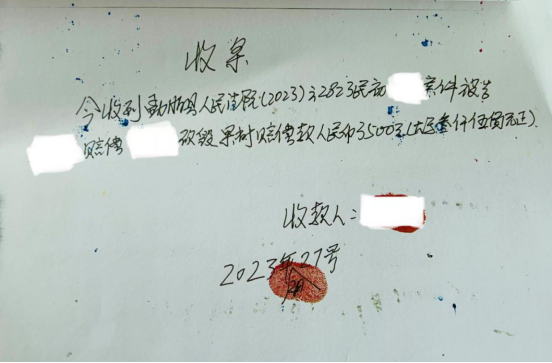 收条
今收到勐腊县人民法院(2023)云2823民初 案件被告
赔偿 砍毁果树赔偿款人民币3500元(大写叁仟伍佰元正).
收款人:
2023年 27号